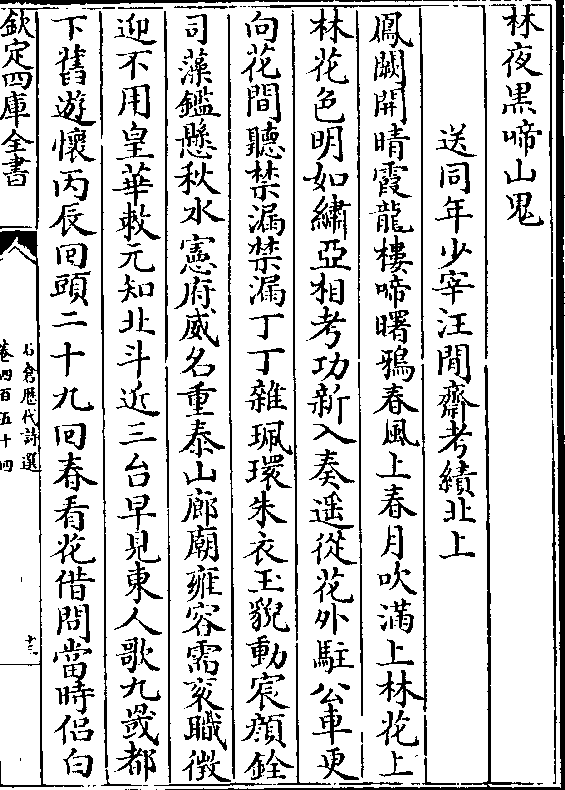 林夜黒啼山鬼
送同年少宰汪閒齋考績北上
鳳闕開晴霞龍樓啼曙鴉春風上春月吹滿上林花上
林花色明如繡亞相考功新入奏遥從花外駐公車更
向花間聽禁漏禁漏丁丁雜珮環朱衣玉貌動宸顔銓
司藻鑑懸秋水憲府威名重泰山廊廟雍容需衮職徴
迎不用皇華敕元知北斗近三台早見東人歌九罭都
下舊遊懷丙辰回頭二十九回春看花借問當時侣白
欽定四庫全書
石倉歴代詩選
卷四百五十四
十三